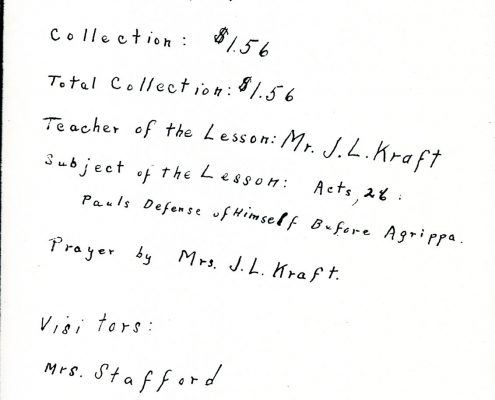 Collection: $1.56
Total Collection: $1.56
Teacher of the Lesson: Mr. J.L. Kraft
Subject of the Lesson: Acts, 26:
Pauls Defense of Himself Before Agrippa.
Prayer by Mrs. J.L. Kraft.
Visitors:
Mrs. Stafford